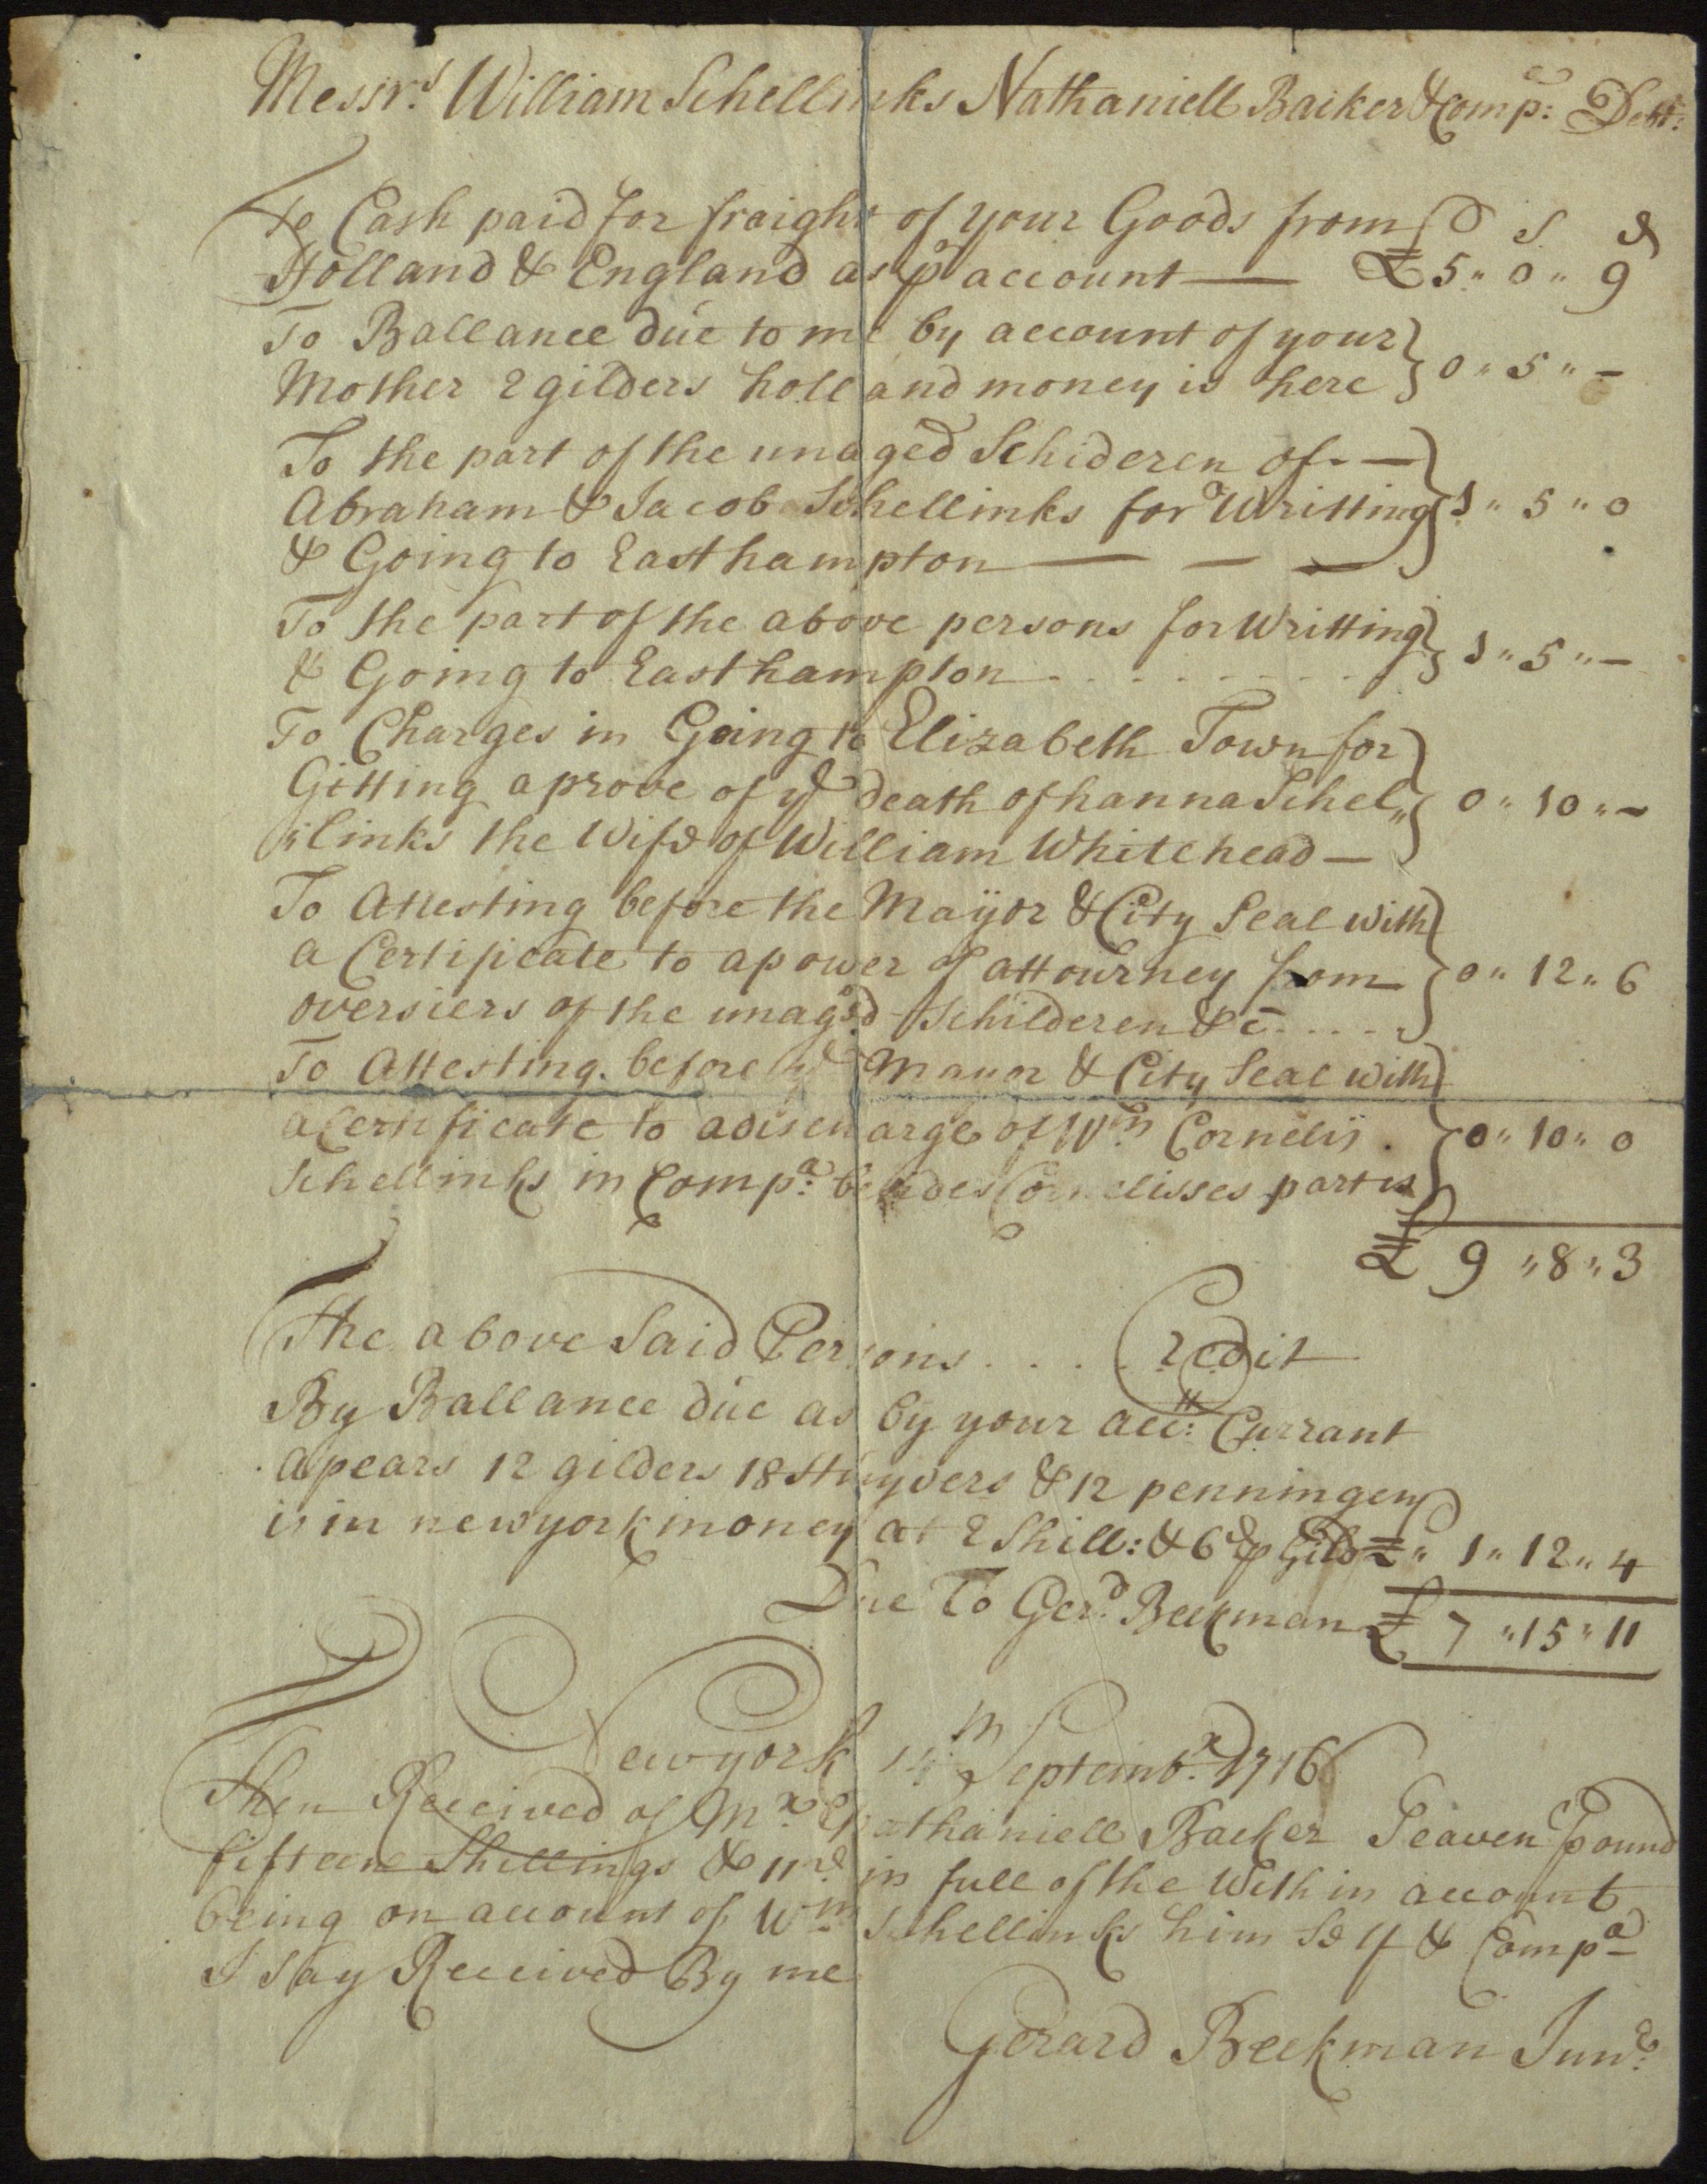 Messrs. William Schellinks Nathaniell Baiker & Comp: Debt:
To Cash paid for fraight of your Goods from £ S d
Holland & England as pr account — £ 5 " 0 " 9
To Ballance due to me by account of your
Mother 2 gilders holland money is here } 0 " 5 " –
To the part of the unaged Schideren of —
Abraham & Jacob Schellinks for a Writting } 1 " 5 " 0
& Going to Easthampton — — —
To the part of the above persons for Writting
& Going to Easthampton . . . . . . . } 1 " 5 " –
To Charges in Going to Elizabeth Town for
Gitting a prove of ye death of hanna Schel„ } 0 " 10 " –
„links the Wife of William Whitehead —
To Attesting before the Mayor & City Seal with
a Certificate to a power of attourney from } 0 " 12 " 6
oversiers of the unaged Schilderen &c . . . .
To Attesting before ye Mayor & City Seal with
a Certificate to a discharge of Wm Cornelis . } 0 " 10 " 0
Schellinks in Compa: besides Cornelisses part is
£ 9 " 8 " 3
The above Said Persons . . . . Credit
By Ballance due as by your acc: Currant
apears 12 gilders 18 Stuyvers & 12 penningen
is in newyork money at 2 Shill: & 6d p Gild £ " 1 " 12 " 4
Due To Gerd. Beekman £ 7 " 15 " 11
Newyork th Septembr. 1716
Then Received of Mr. Nathaniell Backer Seaven Pound
fifteen Shillings & 11d in full of the With in account
being on account of Wm Schellinks him Self & Compa
I Say Received By me
Gerard Beekman Junr: